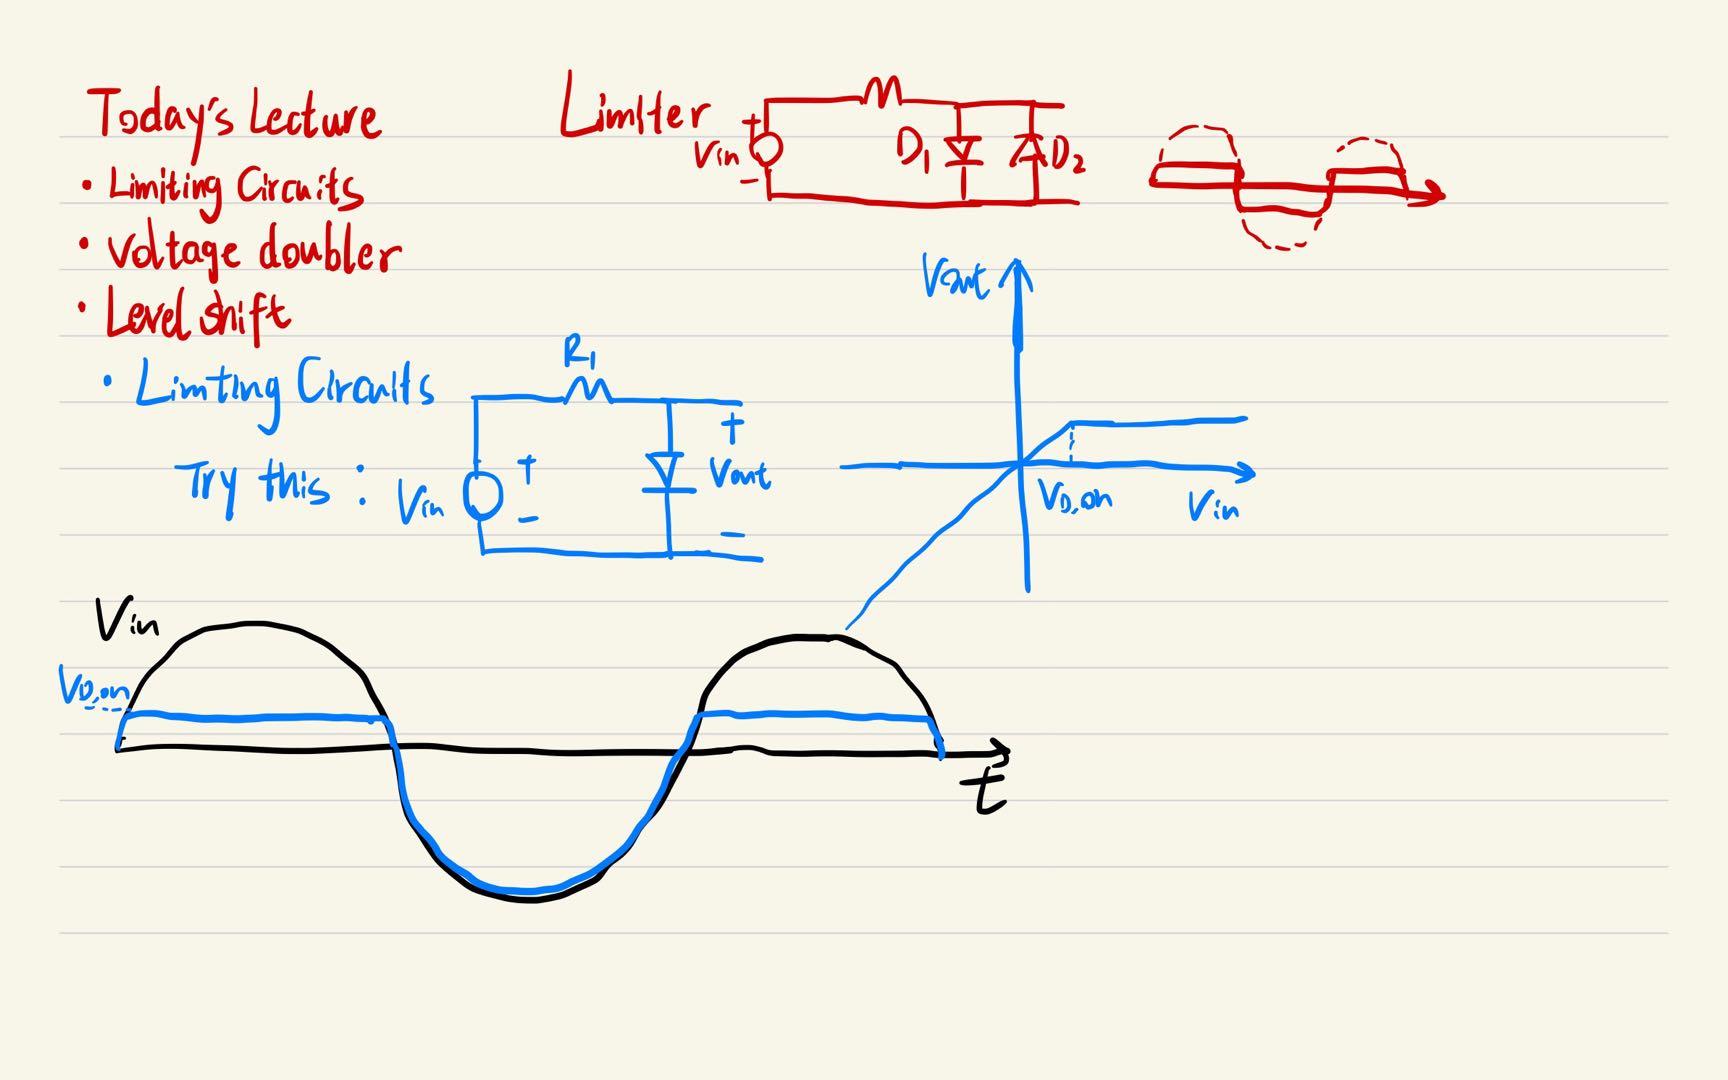 Today's Lecture
• Limiting Circuits
• Voltage doubler
• Level shift
Limiter
+
Vin
−
D1
D2
• Limting Circuits
Try this :
R1
Vin
+
−
+
Vout
−
Vout
VD,on
Vin
Vin
VD,on
t